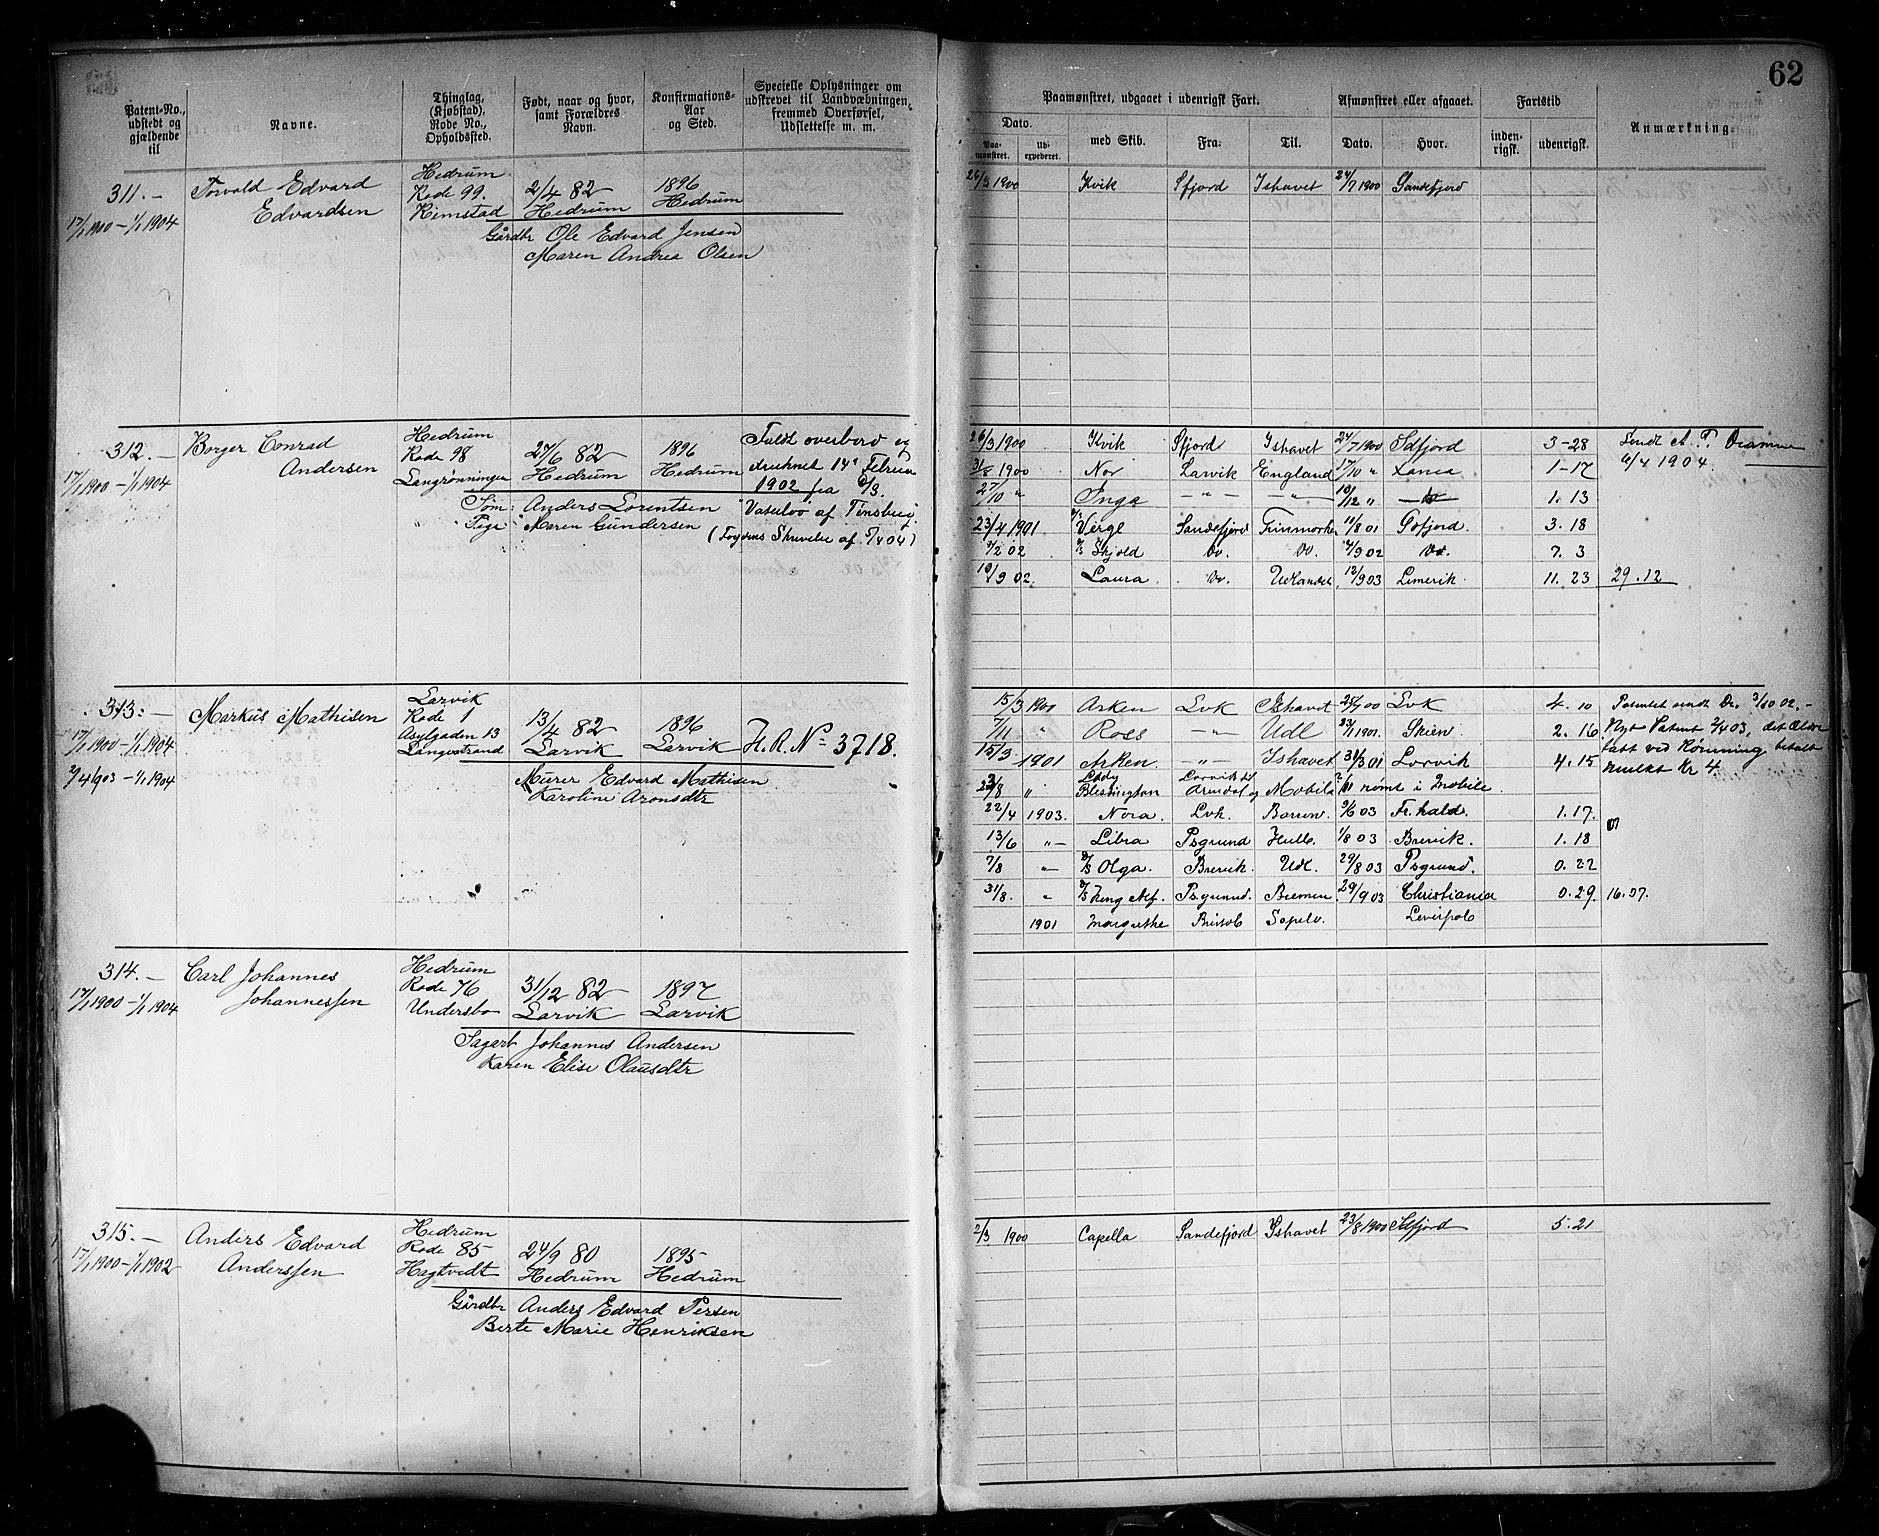 62
Patent-No., udstedt og gjældende til
Navne.
Thinglag, (Kjøbstad), Rode No., Opholdssted.
Født, naar og hvor, samt Forældres Navn.
Konfirmations-Aar og Sted.
Specielle Oplysninger om udskrevet til Landværningen, fremmed Overførsel, Udslettelse m. m.
Paamønstret, udgaaet i udenrigsk Fart.
Afmønstret eller afgaaet.
Fartstid
Anmærkning.
Dato.
Paa-mønstret.
Ud-expederet.
med Skib.
Fra.
Til.
Dato.
Hvor.
inden-rigsk.
udenrigsk.
311.–
17/1 1900 – 1/1 1904
Torvald Edvard
Edvardsen
Hedrum
Rode 99.
Rimstad
2/4 82
Hedrum
1896
Hedrum
Gårdbr Ole Edvard Jensen
Maren Andrea Olsen
26/3 1900 Kvik Sfjord Ishavet 24/7 1900 Sandefjord
312.–
17/1 1900 – 1/1 1904
Borger Conrad
Andersen
Hedrum
Rode 98
Langrønningen
27/6 82
Hedrum
1896
Hedrum
Faldt overbord og
druknet 14
1902 fra
Søm: Anders Lorentsen
Pige: Maren Gundersen
Vaterloo af Tønsberg
26/3 1900 Kvik Sfjord Ishavet 24/7 1900 Sdfjord 3-28
31/8 1900 Nor Larvik England 17/10 " 1-17
27/10 " Inga –"– –"– 10/12 " 1. 13
23/4 1901 Verge Sandefjord Finmarken 11/8 01 3. 18
9/2 02 Skjold Do. Do. 7/9 02 Do. 7. 3
10/9 02 Laura Do. Udlandet 12/9 03 Limerik 11. 23 29.12
Sendt A. P. Dramme
6/4 1904.
313.–
17/1 1900 – 1/1 1904
2/4 1903 – 1/1 1904
Markus Mathisen
Larvik
Rode 1
Asylgaden 13
Langestrand
13/4 82
Larvik
1896
Larvik
H.R. No 3718.
Murer Edvard Mathisen
Karoline Aronsdtr
15/3 1900 Arken Lvk Ishavet 25/7 00 Lvk 4. 10
7/11 " Ross –"– Udl 23/1 1901. Skien 2. 16
15/3 1901 Arken –"– Ishavet 31/3 01 Larvik 4. 15
23/8 " Lady Blessington Larvik til Arendal og Mobile rømt i Mobile
22/4 1903. Nora Lvk. Barrow. 9/6 03 Fr.hald. 1. 17.
13/6 –"– Libra Psgrund Hull. 1/8 03 Brevik. 1. 18
7/8 –"– D/S Olga Brevik. Udl. 29/8 03 Psgrund. 0. 22
31/8. " D/S Kong Alf. Psgrund. Bremen 29/9 03 Christiania 0. 29. 16.07.
1901 Margrethe
Patentet sendt Dr. 3/10 02. –
Nyt Patent 2/4 03, det ældre
tabt ved Rømning, betalt
mulkt Kr 4
314.–
17/1 1900 – 1/1 1904
Carl Johannes
Johannessen
Hedrum
Rode 76
Undersbo
31/12 82
Larvik
1897
Larvik
Sagarb Johannes Andersen
Karen Elise Olausdtr
315.–
17/1 1900 – 1/1 1902
Anders Edvard
Anderssen
Hedrum
Rode 85
Hagtvedt
24/9 80
Hedrum
1895
Hedrum
Gårdbr Anders Edvard Persen
Berte Marie Henriksen
2/3 1900 Capella Sandefjord Ishavet 23/8 1900 Sdfjord 5. 21